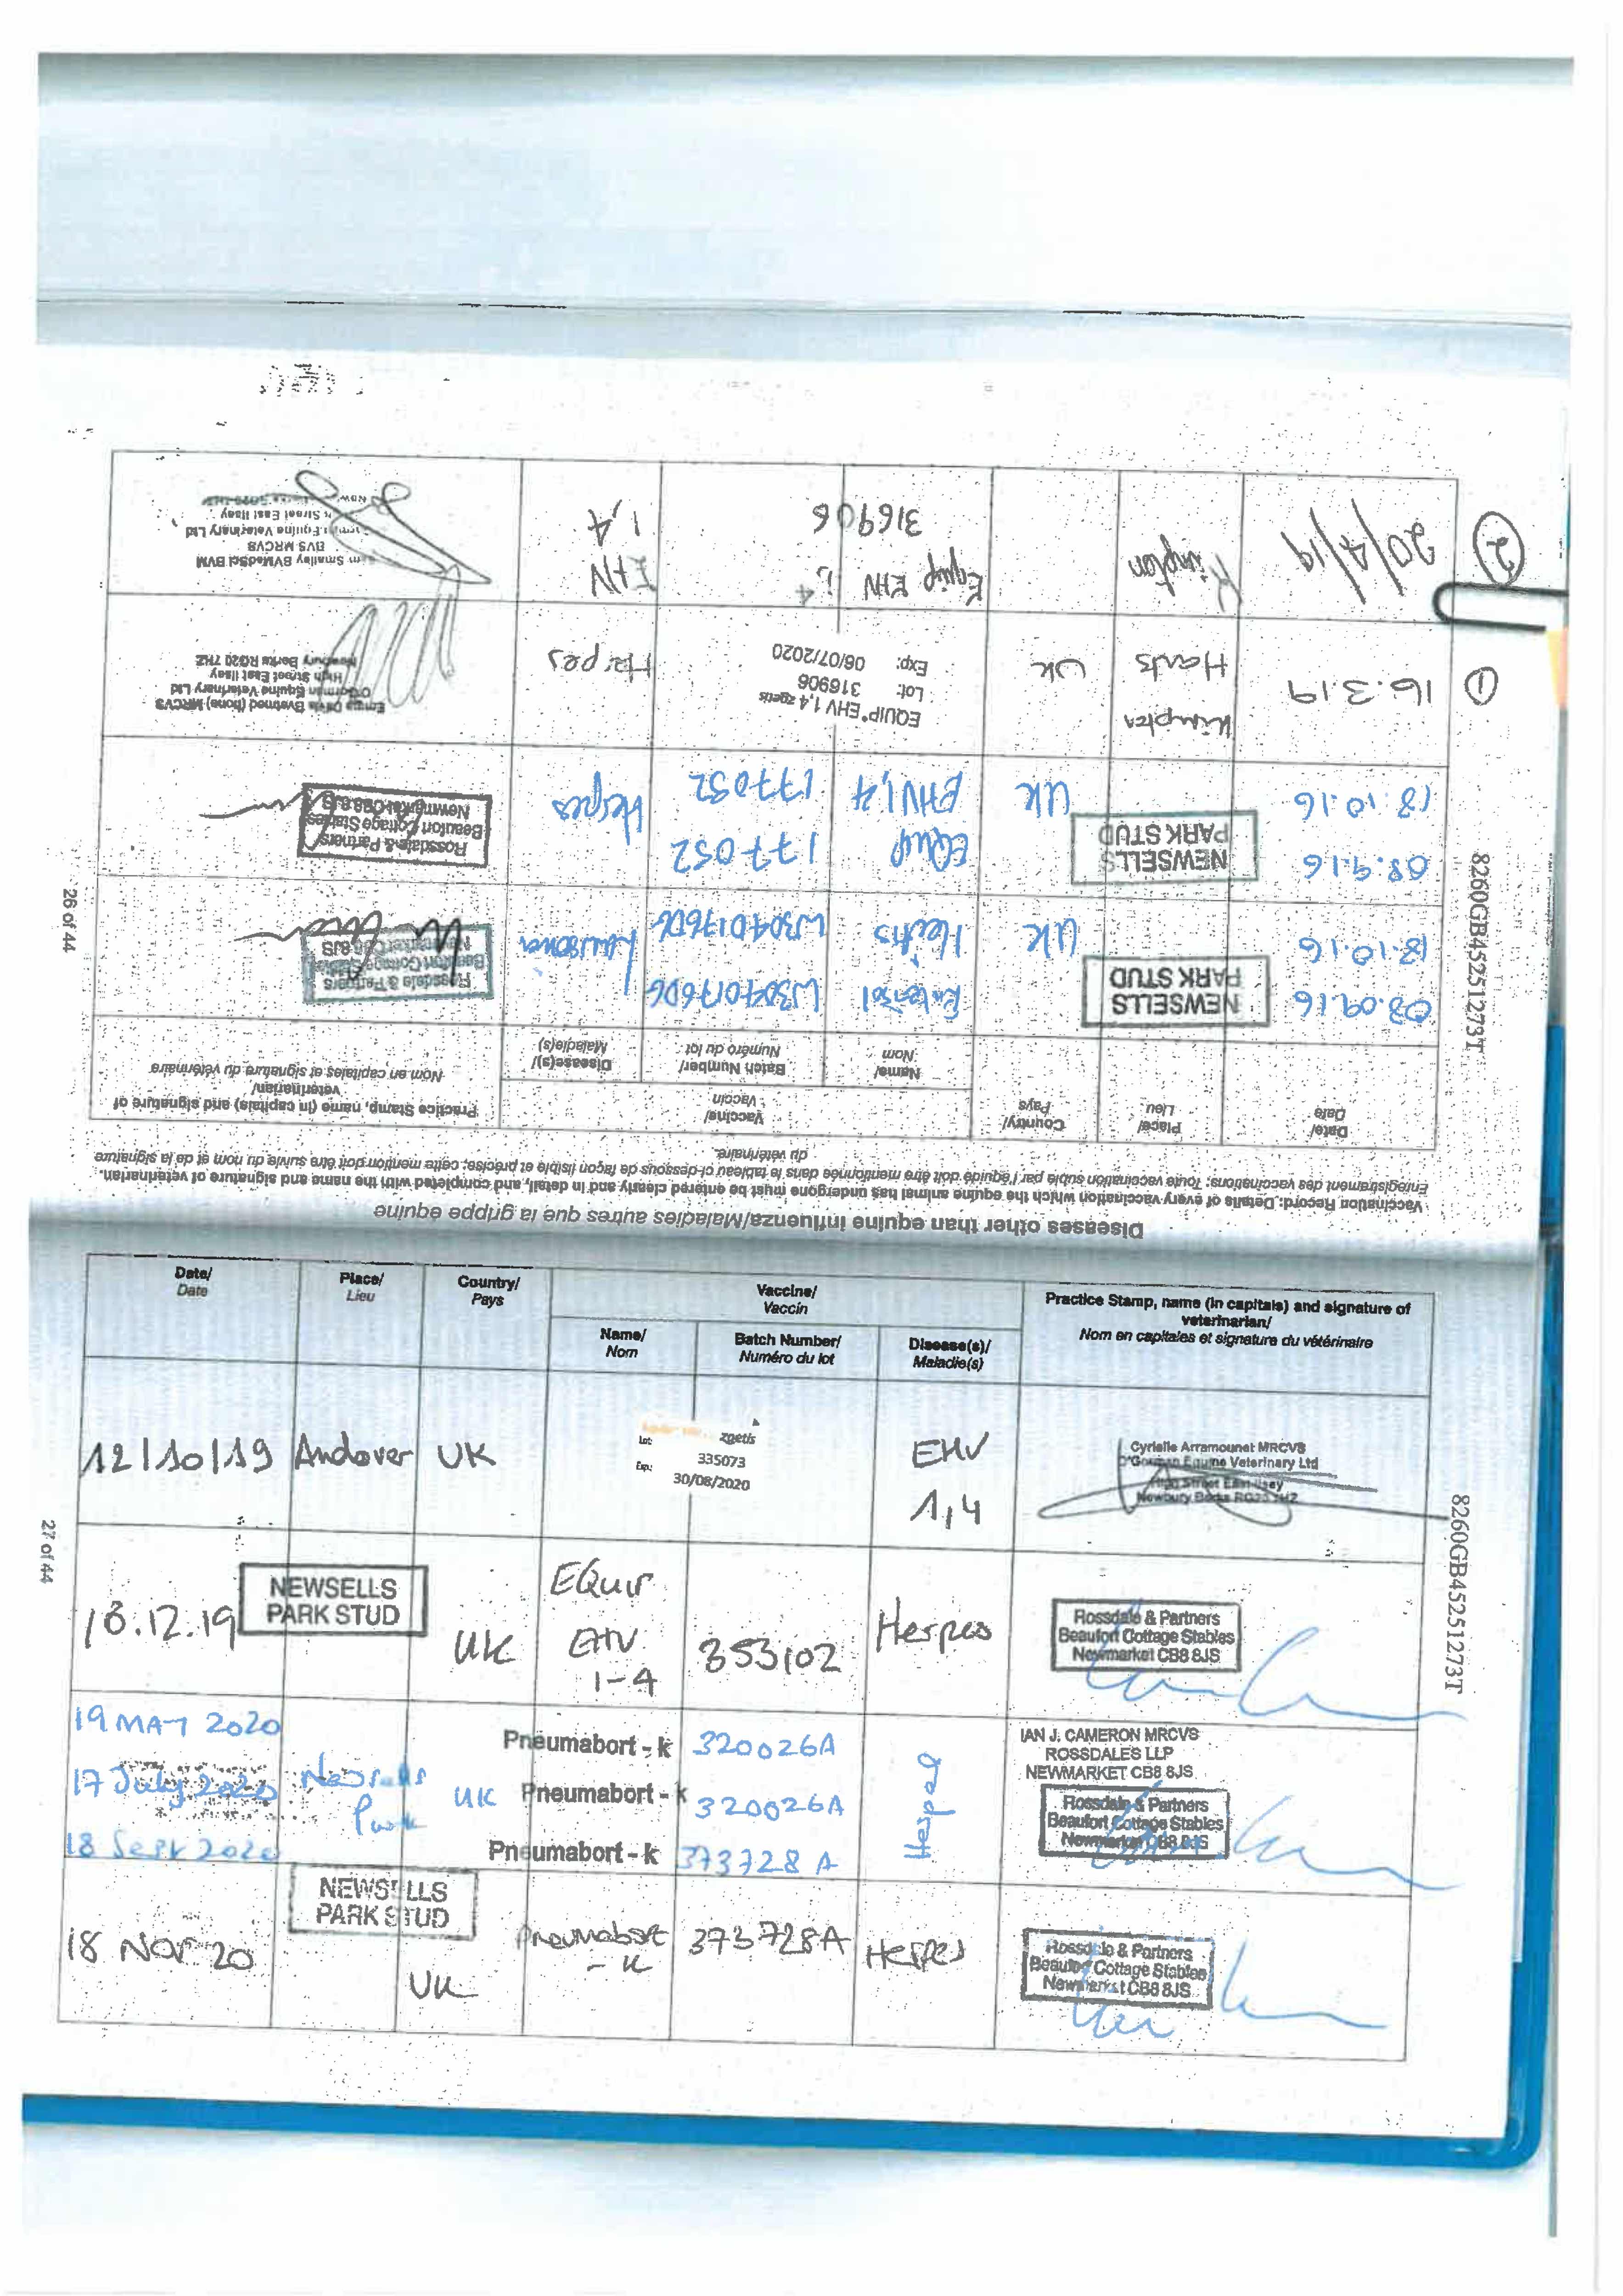 Diseases other than equine influenza/Maladies autres que la grippe equine
Vaccination Record: Details of every vaccination which the equine animal has undergone must be entered clearly and in detail, and completed with the name and signature of veterinarian.
Enregistrement des vaccinations: Toute vaccination subie par l'équidé doit être mentionnée dans le tableau ci-dessous de façon lisible et précise; cette mention doit être suivie du nom et de la signature
du vétérinaire.
Date/
Date
Place/
Lieu
Country/
Pays
Vaccine/
Vaccin
Name/
Nom
Batch Number/
Numéro du lot
Disease(s)/
Maladie(s)
Practice Stamp, name (in capitals) and signature of
veterinarian/
Nom en capitales et signature du vétérinaire
08.09.16
18.10.16
NEWSELLS
PARK STUD
UK
W304017606
Rossdale & Partners
Beaufort Cottage Stables
Newmarket CB8 8JS
08.9.16
18.10.16
NEWSELLS
PARK STUD
UK
EQuip
EHV1,4
177052
177052
Herpes
Rossdale & Partners
Beaufort Cottage Stables
Newmarket CB8 8JS
① 16.3.19
Kimpton
Hants
UK
EQUIP® EHV 1,4 zoetis
Lot: 316906
Exp: 06/07/2020
Herpes
Emma Davis Bvetmed (hons) MRCVS
O'Gorman Equine Veterinary Ltd
High Street East Ilsey
Newbury Berks RG20 7HZ
② 20/4/19
Kimpton
Equip EHV 1,4
316906
EHV
1,4
Smalley BVMedSci BVM
BVS MRCVS
Equine Veterinary Ltd
Street East Ilsey
26 of 44
8260GB45251273T
Date/
Date
Place/
Lieu
Country/
Pays
Vaccine/
Vaccin
Name/
Nom
Batch Number/
Numéro du lot
Disease(s)/
Maladie(s)
Practice Stamp, name (in capitals) and signature of
veterinarian/
Nom en capitales et signature du vétérinaire
12/10/19 Andover UK
zoetis
Lot: 335073
Exp: 30/08/2020
EHV
1,4
Cyrielle Arramounet MRCVS
O'Gorman Equine Veterinary Ltd
High Street East Ilsey
Newbury Berks RG20 7HZ
18.12.19
NEWSELLS
PARK STUD
UK
EQuip
EHV
1-4
353102
Herpes
Rossdale & Partners
Beaufort Cottage Stables
Newmarket CB8 8JS
19 MAY 2020
Pneumabort - k 320026A
17 July 2020
Newsells
Park
UK
Pneumabort - k 320026A
18 Sept 2020
Pneumabort - k 373728A
Herpes
IAN J. CAMERON MRCVS
ROSSDALES LLP
NEWMARKET CB8 8JS
Rossdale & Partners
Beaufort Cottage Stables
Newmarket CB8 8JS
18 Nov 20
NEWSELLS
PARK STUD
UK
Pneumabort
- K
373728A
Herpes
Rossdale & Partners
Beaufort Cottage Stables
Newmarket CB8 8JS
27 of 44
8260GB45251273T